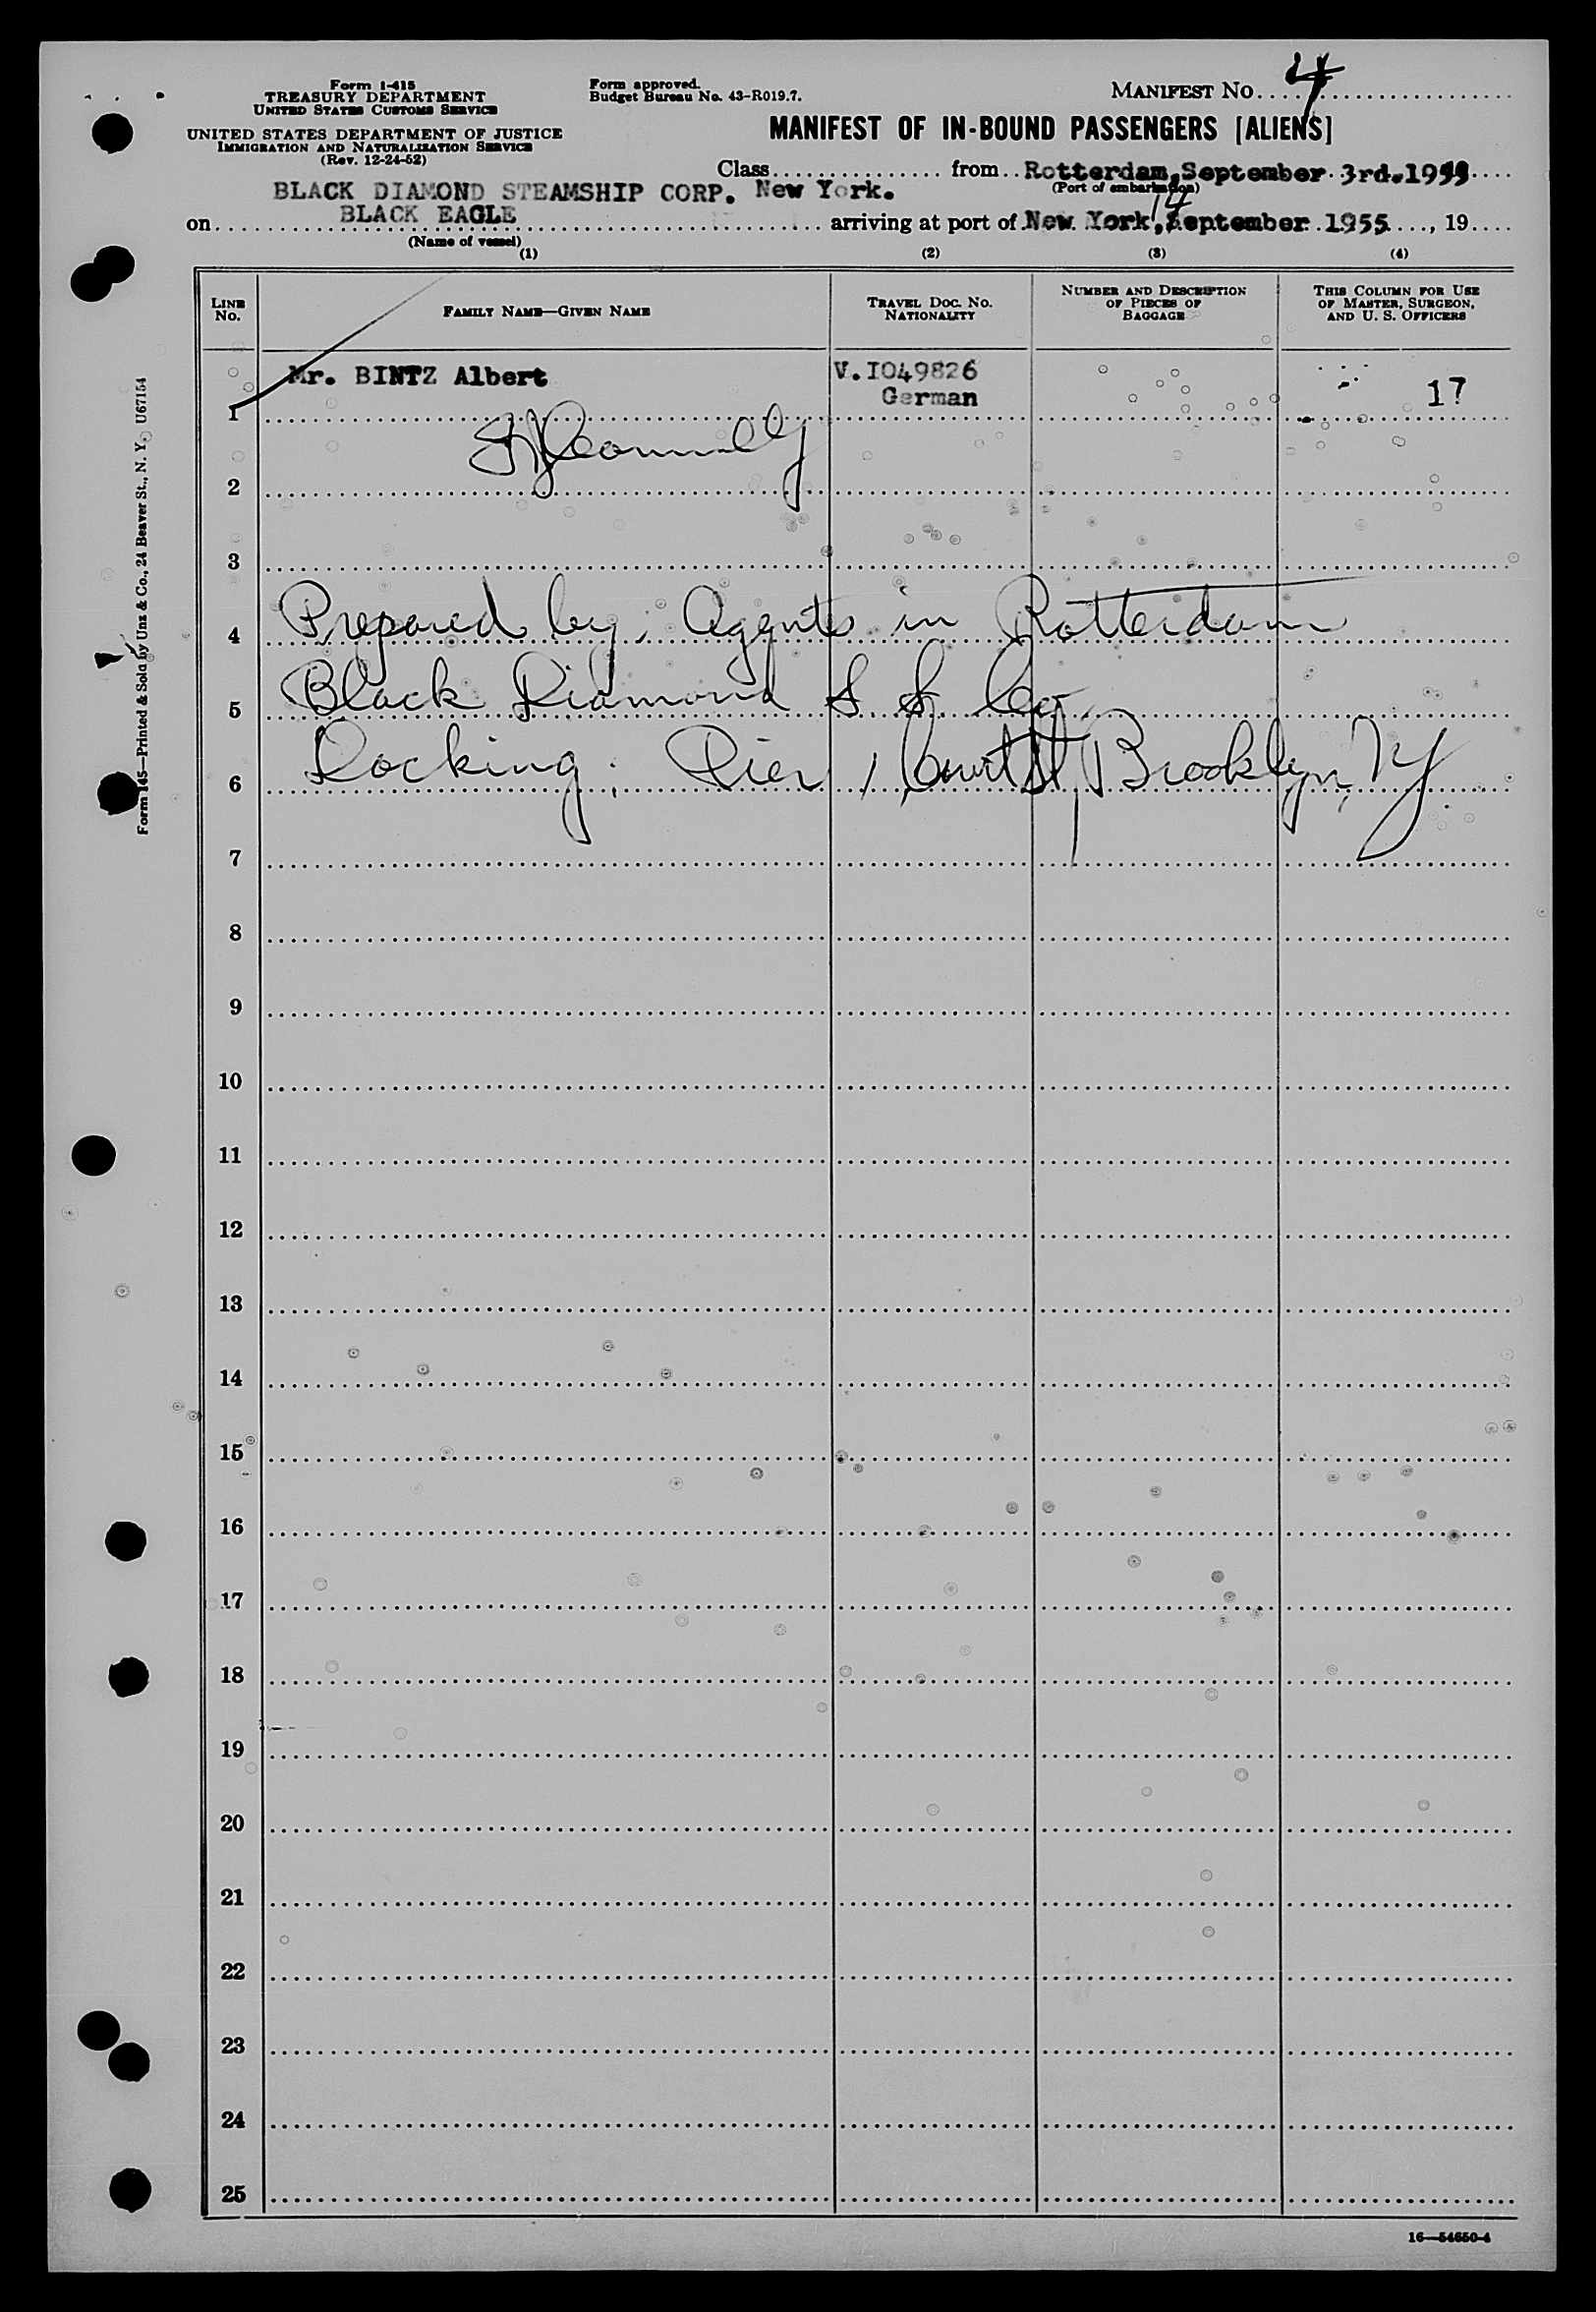 Form I-415
TREASURY DEPARTMENT
UNITED STATES CUSTOMS SERVICE
UNITED STATES DEPARTMENT OF JUSTICE
IMMIGRATION AND NATURALIZATION SERVICE
(Rev. 12-24-52)
Form approved.
Budget Bureau No. 43-R019.7.
MANIFEST NO. 4
MANIFEST OF IN-BOUND PASSENGERS [ALIENS]
Class from Rotterdam, September 3rd. 1955
(Port of embarkation)
BLACK DIAMOND STEAMSHIP CORP. New York.
on BLACK EAGLE arriving at port of New York, 14 September 1955, 19
(Name of vessel)
(1) (2) (3) (4)
LINE NO. FAMILY NAME—GIVEN NAME TRAVEL DOC. NO. NATIONALITY NUMBER AND DESCRIPTION OF PIECES OF BAGGAGE THIS COLUMN FOR USE OF MASTER, SURGEON, AND U. S. OFFICERS
1 Mr. BINTZ Albert V.I049826 German 17
2
3
4 Prepared by: Agents in Rotterdam
5 Black Diamond S. S. Co.
6 Docking: Pier 1, Court St, Brooklyn, NY
7
8
9
10
11
12
13
14
15
16
17
18
19
20
21
22
23
24
25
Form 145—Printed & Sold by Unz & Co., 24 Beaver St., N. Y. U67154
16—54650-4